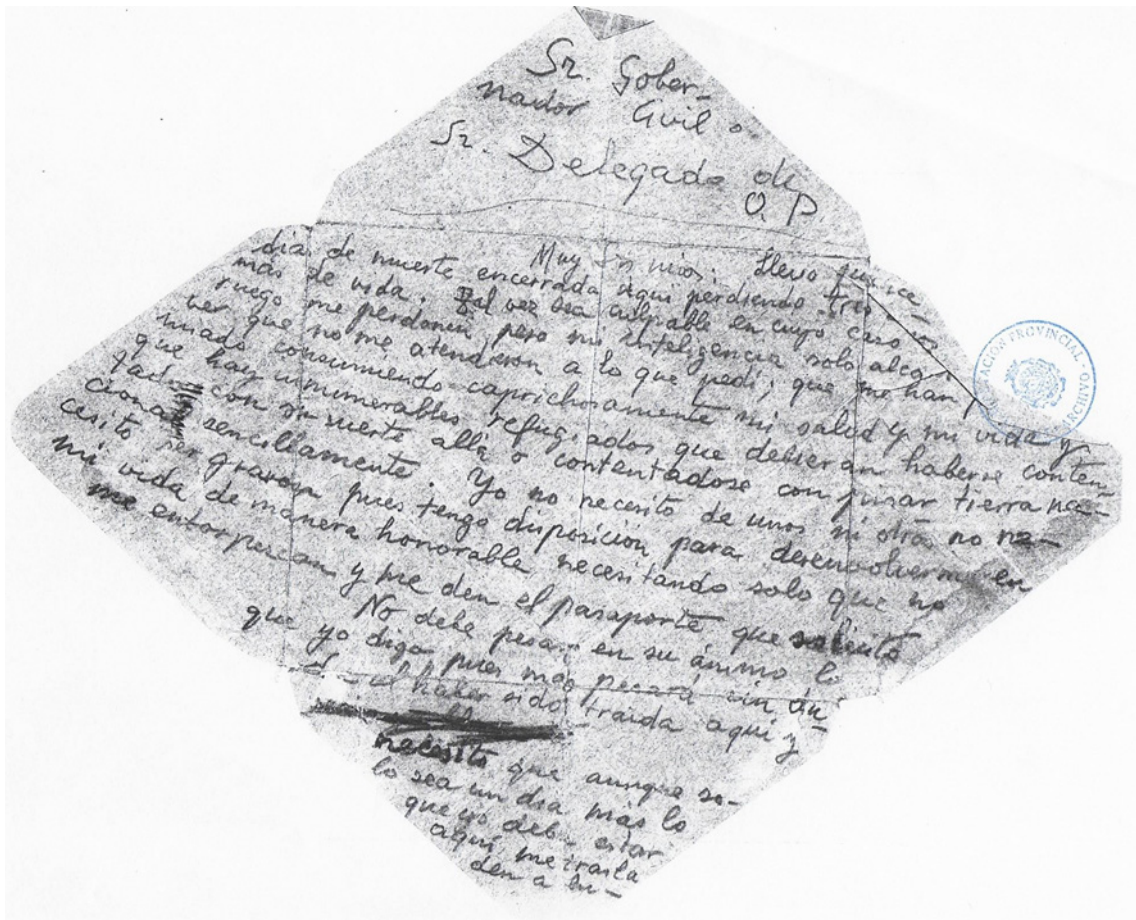 Sr. Gober-
nador Civil o
Sr. Delegado de
O. P
Muy Srs mios: Llevo quince
dias de muerte encerrada aqui perdiendo tres
más de vida. Tal vez sea culpable en cuyo caso os
ruego me perdonen pero mi inteligencia solo alcanza
ver que no me atendieron a lo que pedí; que me han
consumiendo caprichosamente mi salud y mi vida y
que hay innumerables refugiados que debieran haberse conten-
tado con su suerte allá o contentadose con pisar tierra na-
cional sencillamente. Yo no necesito de unos ni otros no ne-
cesito ser gravosa pues tengo disposición para desenvolverme en
mi vida de manera honorable necesitando solo que no
me entorpezcan y me den el pasaporte que solicito
No debe pesar en su ánimo lo
que yo diga pues más pesará sin
el haber sido traida aqui y
necesito que aunque so-
lo sea un dia más lo
que yo deba estar
aquí me trasla
den a lu-
ARCHIVO
PROVINCIAL